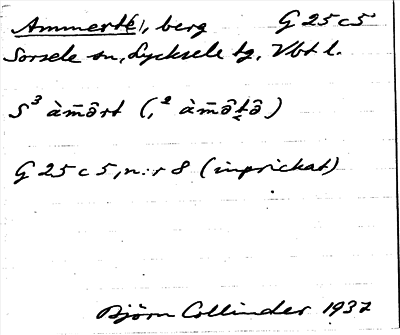 Ammerté, berg G 25 c 5
Sorsele sn, Lycksele tg, Vbt l.
S³ àm̄ôrt (,² àm̄ôt̬ô)
G 25 c 5, n:r 8 (inprickat)
Björn Collinder 1937